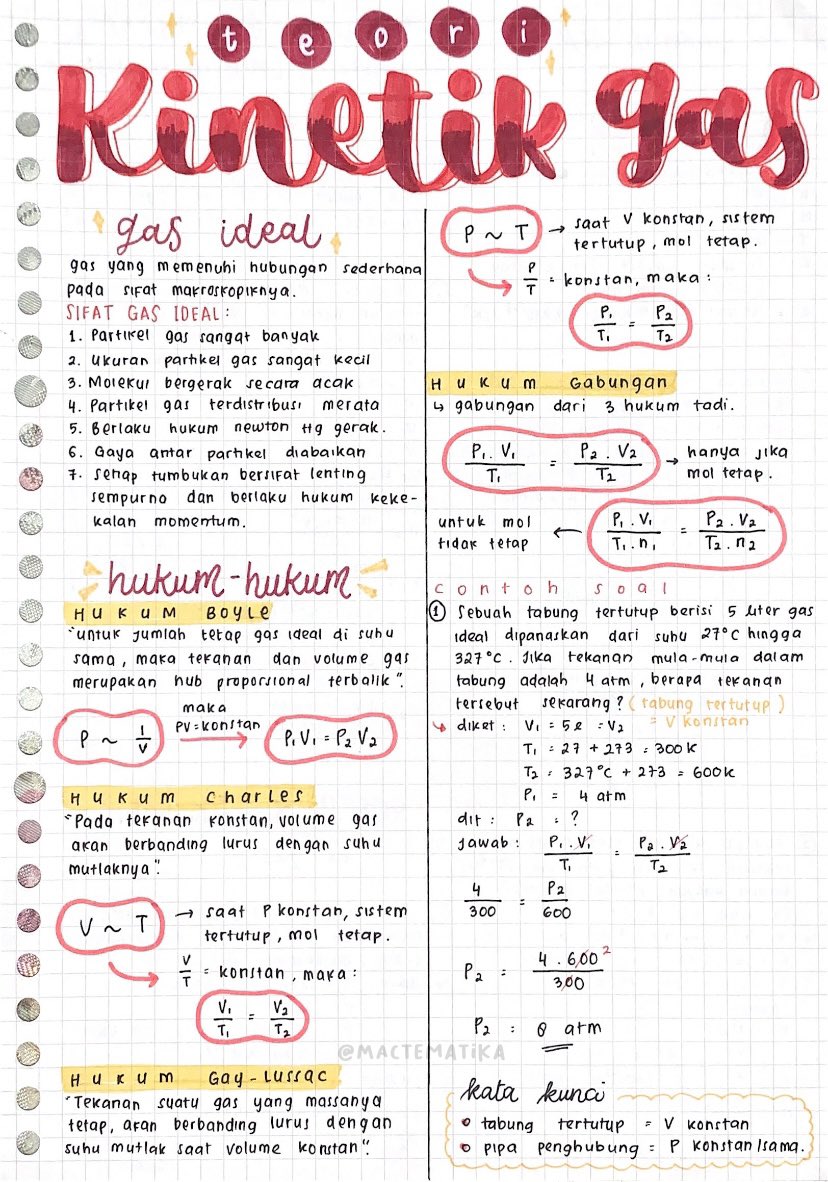 teori
Kinetik gas
gas ideal
gas yang memenuhi hubungan sederhana
pada sifat makroskopiknya.
SIFAT GAS IDEAL:
1. Partikel gas sangat banyak
2. Ukuran partikel gas sangat kecil
3. Molekul bergerak secara acak
4. Partikel gas terdistribusi merata
5. Berlaku hukum newton ttg gerak.
6. Gaya antar partikel diabaikan
7. Setiap tumbukan bersifat lenting
sempurna dan berlaku hukum keke-
kalan momentum.
hukum-hukum
HUKUM BOYLE
"untuk jumlah tetap gas ideal di suhu
sama, maka tekanan dan volume gas
merupakan hub proporsional terbalik".
P ~ 1/V maka PV = konstan → P₁V₁ = P₂V₂
HUKUM Charles
"Pada tekanan konstan, volume gas
akan berbanding lurus dengan suhu
mutlaknya".
V ~ T → saat P konstan, sistem
tertutup, mol tetap.
→ V/T = konstan, maka:
V₁/T₁ = V₂/T₂
HUKUM Gay-Lussac
"Tekanan suatu gas yang massanya
tetap, akan berbanding lurus dengan
suhu mutlak saat volume konstan".
P ~ T → saat V konstan, sistem
tertutup, mol tetap.
→ P/T = konstan, maka:
P₁/T₁ = P₂/T₂
HUKUM Gabungan
↳ gabungan dari 3 hukum tadi.
P₁.V₁/T₁ = P₂.V₂/T₂ → hanya jika
mol tetap.
untuk mol
tidak tetap ← P₁.V₁/T₁.n₁ = P₂.V₂/T₂.n₂
contoh soal
① Sebuah tabung tertutup berisi 5 liter gas
ideal dipanaskan dari suhu 27°C hingga
327°C. Jika tekanan mula-mula dalam
tabung adalah 4 atm, berapa tekanan
tersebut sekarang? (tabung tertutup)
= V konstan
↳ diket : V₁ = 5 ℓ = V₂
T₁ = 27 + 273 = 300 K
T₂ = 327°C + 273 = 600 K
P₁ = 4 atm
dit : P₂ = ?
jawab : P₁.V₁/T₁ = P₂.V₂/T₂
4/300 = P₂/600
P₂ = 4.600²/300
P₂ = 8 atm
kata kunci
• tabung tertutup = V konstan
• pipa penghubung = P konstan/sama.
@MACTEMATIKA